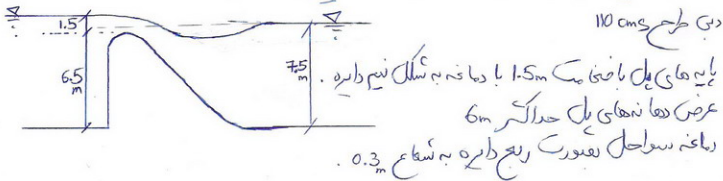 دبی طرح 110 cms
پایه های پل با ضخامت 1.5m با دماغه به شکل نیم دایره .
عرض دهانه‌های پل حداکثر 6m
دماغه سواحل بصورت ربع دایره به شعاع 0.3m .
1.5
6.5
m
7.5
m